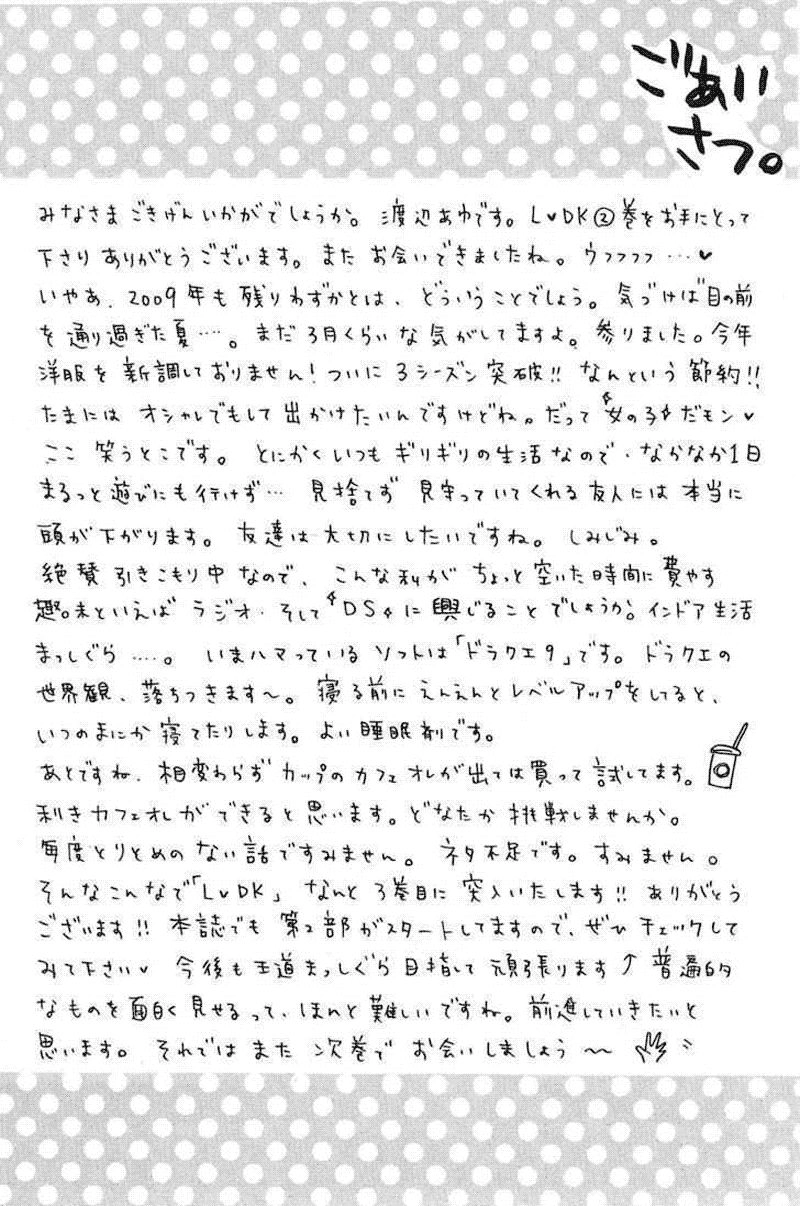 ごあい
さつ。
みなさま ごきげんいかがでしょうか。 渡辺あゆです。 L♥DK②巻をお手にとって
下さり ありがとうございます。また お会いできましたね。ウフフフフ…♥
いやぁ、2009年も残りわずかとは、どういうことでしょう。気づけば目の前
を通り過ぎた夏…。まだ3月くらいな気がしてますよ。参りました。今年
洋服を新調しておりません!ついに3シーズン突破!! なんという節約!!
たまには オシャレでもして出かけたいんですけどね。だって女の子だモン♥
ここ 笑うとこです。とにかくいつもギリギリの生活なので、なかなか1日
まるっと遊びにも行けず… 見捨てず 見守っていてくれる友人には本当に
頭が下がります。 友達は大切にしたいですね。しみじみ。
絶賛引きこもり中なので、こんな私がちょっと空いた時間に費やす
趣味といえばラジオ・そして“DS”に興じることでしょうか。インドア生活
まっしぐら…。 いまハマっているソフトは「ドラクエ9」です。ドラクエの
世界観、落ちつきます〜。寝る前にえんえんとレベルアップをしてると、
いつのまにか寝てたりします。よい睡眠剤です。
あとですね、相変わらずカップのカフェオレが出ては買って試してます。
利きカフェオレができると思います。どなたか挑戦しませんか。
毎度とりとめのない話ですみません。 ネタ不足です。すみません。
そんなこんなで「L♥DK」なんと3巻目に突入いたします!! ありがとう
ございます!! 本誌でも第2部がスタートしてますので、ぜひチェックして
みて下さい♥ 今後も王道まっしぐら目指して頑張ります↑ 普遍的
なものを面白く見せるって、ほんと難しいですね。前進していきたいと
思います。それではまた 次巻で お会いしましょう〜